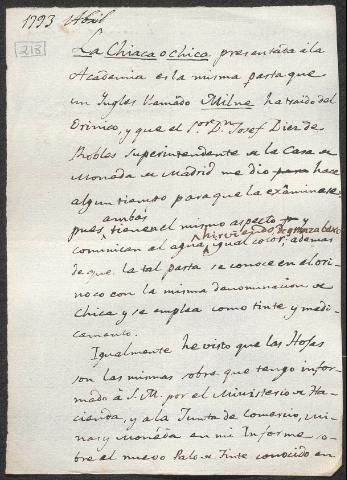 1793 Abril
213
La Chiaca o chica presentada á la
Academia es la misma pasta que
un Ingles llamado Milne ha traido del
Orinico, y que el Sor. Dn. Josef Diez de
Robles Superintendente de la Casa de
Moneda de Madrid me dio para hace
algun tiempo para que la exâminase,
ambas
pues tienen el mismo aspecto y
comunican al agua hirviendo igual color, ademas
de que la tal pasta se conoce en el ori-
noco con la misma denominacion de
Chica y se emplea como tinte y medi-
camento.
Igualmente he visto que las Hojas
son las mismas sobre que tengo infor-
mado á S.M. por el Ministerio de Ha-
cienda, y a la Junta de Comercio, Mi-
nas y Moneda en mi Informe so-
bre el nuevo Palo de Tinte conocido en